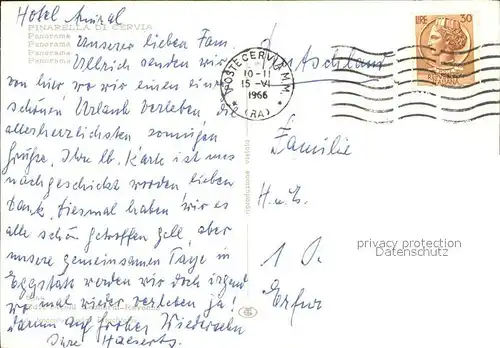 Hotel Amiral
PINARELLA DI CERVIA
Panorama
Panorama
Panorama
Panorama
Unserer lieben Fam.
Ullrich senden wir
von hier wo wir einen
schönen Urlaub verleben, die
allerherzlichsten sonnigen
Grüße. Ihre lb. Karte ist uns
nachgeschickt worden lieben
Dank, diesmal haben wir es
alle schön getroffen gell, aber
unsere gemeinsamen Tage in
Eggstätt werden wir doch irgend
wo mal wieder verleben ja!
darum auf frohes Wiedersehn
Ihre Haeserts
POSTE CERVIA M.M.
10-11
15 -VI
1966
(RA)
LIRE 30
riproduzione vietata
Familie
H. u. G.
privacy protection
Datenschutz
1 O.
Erfur